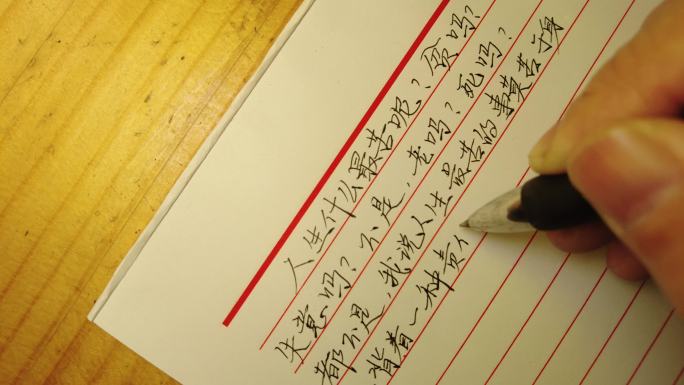 人生什么最苦呢?贫吗?
失意吗?不是,老吗?死吗?
都不是,我说人生最苦的事莫苦于身
背着一种责